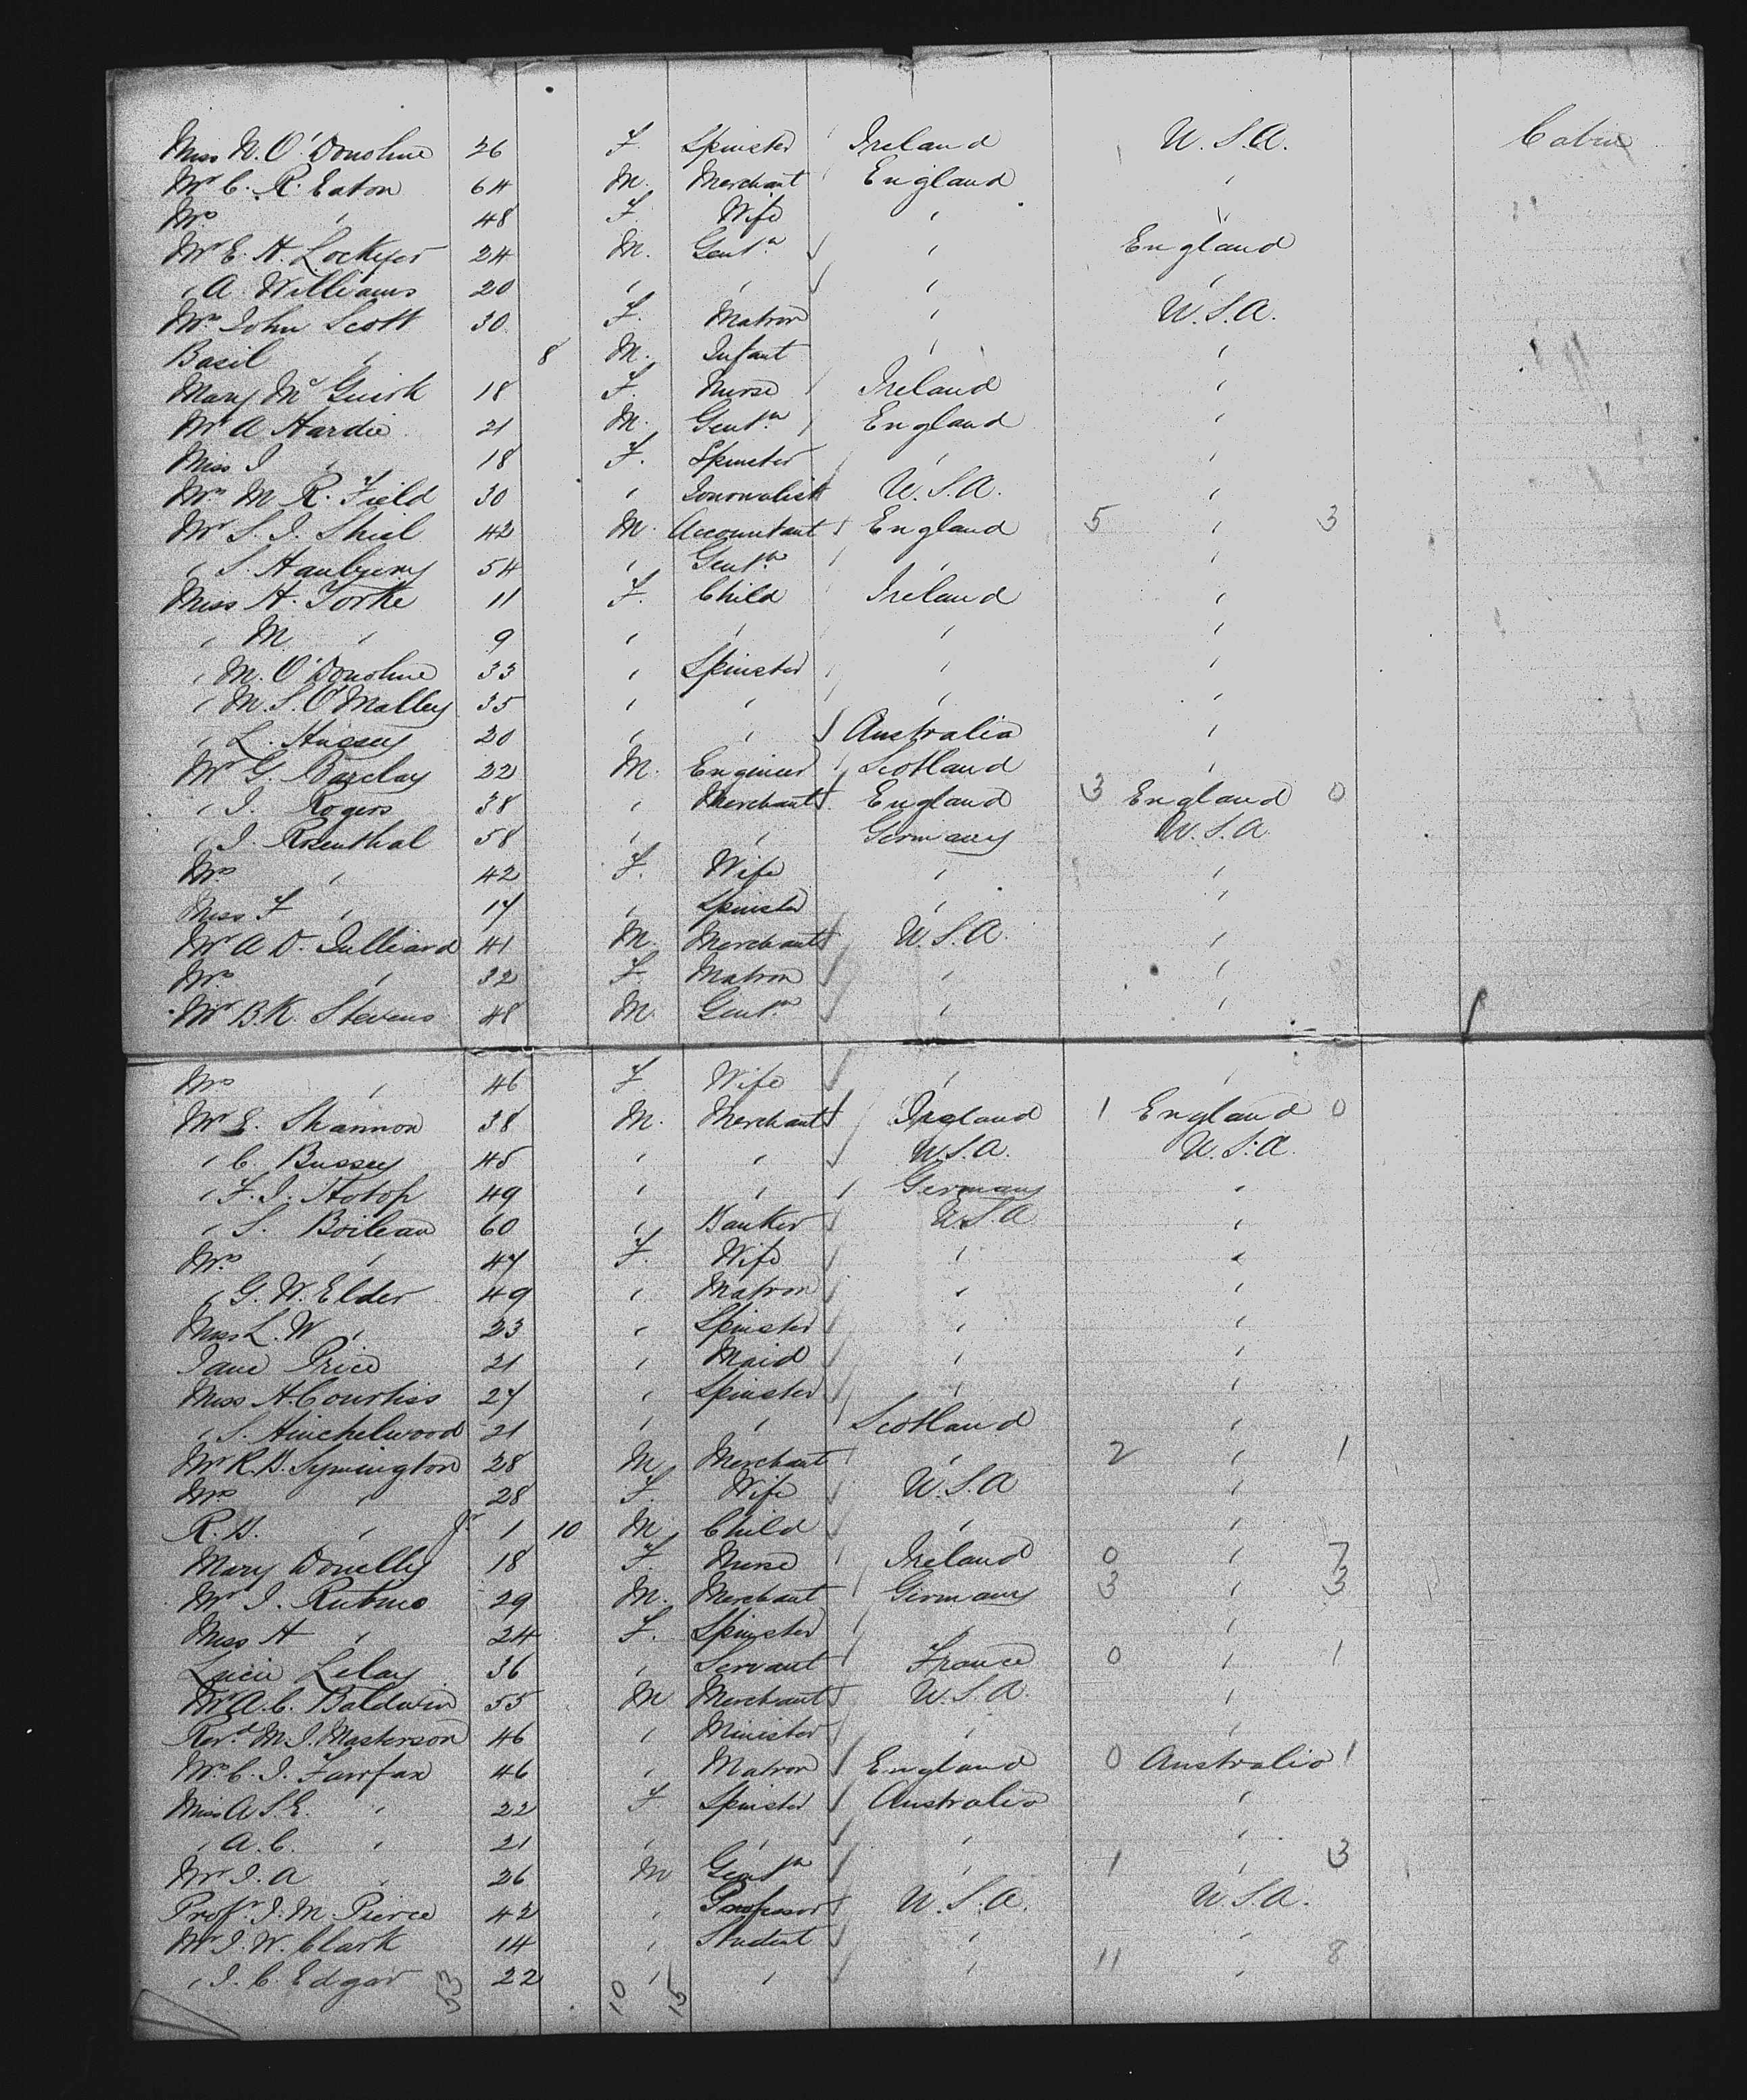 Miss N. O'Donohue 26 F. Spinster Ireland U.S.A. Cabin
Mr C. R. Eaton 64 M. Merchant England "
Mrs " 48 F. Wife " "
Mr E. H. Lockyer 24 M. Gentn " England
" A. Williams 20 " " " "
Mrs John Scott 30 F. Matron " U.S.A.
Basil " 8 M. Infant " "
Mary McGuirk 18 F. Nurse Ireland "
Mr A Hardie 21 M. Gentn England "
Miss J " 18 F. Spinster " "
Mrs M. R. Field 30 " Journalist U.S.A. "
Mr S. J. Shiel 42 M. Accountant England 5 " 3
" S. 54 " Gentn " "
Miss H. Yorke 11 F. Child Ireland "
" M. " 9 " " " "
" M. O'Donohue 33 " Spinster " "
" M. S. O'Malley 35 " " " "
" L. Hussey 20 " " Australia "
Mr G. Barclay 22 M. Engineer Scotland "
" J. Rogers 38 " Merchant England 3 England 0
" J. Rosenthal 58 " " Germany U.S.A.
Mrs " 42 F. Wife " "
Miss F " 17 " Spinster " "
Mr A D. Julliard 41 M. Merchant U.S.A. "
Mrs " 32 F. Matron " "
Mr B.K. Stevens 48 M. Gentn " "
Mrs " 46 F. Wife " "
Mr E. Shannon 38 M. Merchant 1 England 0
" C. Bussey 45 " " U.S.A. U.S.A.
" F. J. Stotop 49 " " Germany "
" S. Boileau 60 " Banker U.S.A. "
Mrs " 47 F. Wife " "
" G. W. Elder 49 " Matron " "
Miss L. W " 23 " Spinster " "
Jane Price 21 " Maid " "
Miss H. Courtiss 27 " Spinster " "
" S. Hinchelwood 21 " " Scotland "
Mr R. B. Symington 28 M. Merchant " 2 " 1
Mrs " 28 F. Wife U.S.A "
R. B. " Jr 1 10 M. Child " "
Mary Donelly 18 F. Nurse Ireland 0 " 7
Mr J. Rubino 29 M. Merchant Germany 3 " 3
Miss H " 24 F. Spinster " "
Lucie Lelay 36 " Servant France 0 " 1
Mr A. C. Baldwin 55 M Merchant U.S.A. "
Revd M. J. Masterson 46 " Minister " "
Mrs C. J. Fairfax 46 " Matron England 0 Australia 1
Miss A S. E. " 22 F Spinster Australia "
" A. C. " 21 " " " "
Mr J. A " 26 M Gentn " 1 " 3
Profr J. M. Pierce 42 " Professor U.S.A. U.S.A.
Mr J. W. Clark 14 " Student " "
" J. C. Edgar 22 " " " 11 " 8
53 10 15